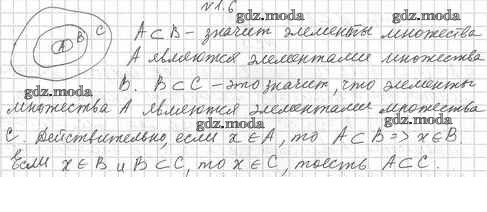 №1.6
gdz.moda
A ⊂ B – значит элементы множества
A B C
gdz.moda
А являются элементами множества
В. B ⊂ C – это значит, что элементы
gdz.moda
множества А являются элементами множества
gdz.moda gdz.moda
С. Действительно, если x ∈ A, то A ⊂ B => x ∈ B
Если x ∈ B и B ⊂ C, то x ∈ C, тоесть A ⊂ C.
gdz.moda